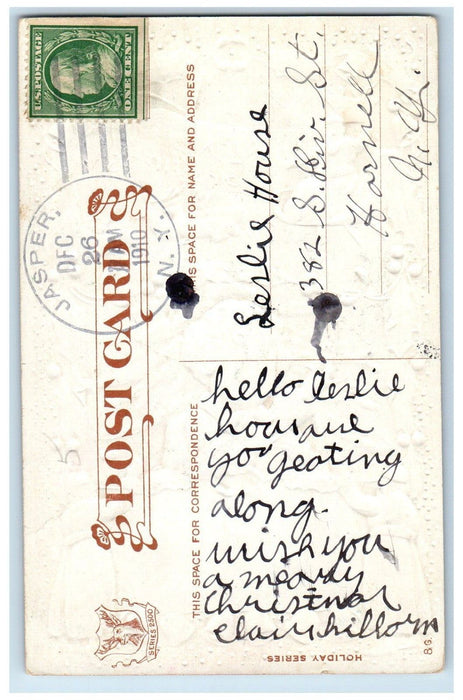 U.S. POSTAGE
ONE CENT
JASPER,
DEC
26
AM
1910
N.Y.
POST CARD
THIS SPACE FOR NAME AND ADDRESS
Leslie House
382 S. Div. St.
Hornell
N.Y.
THIS SPACE FOR CORRESPONDENCE
hello leslie
how are
you geating
along.
wish you
a mearay
Christmas
SERIES 2500
HOLIDAY SERIES